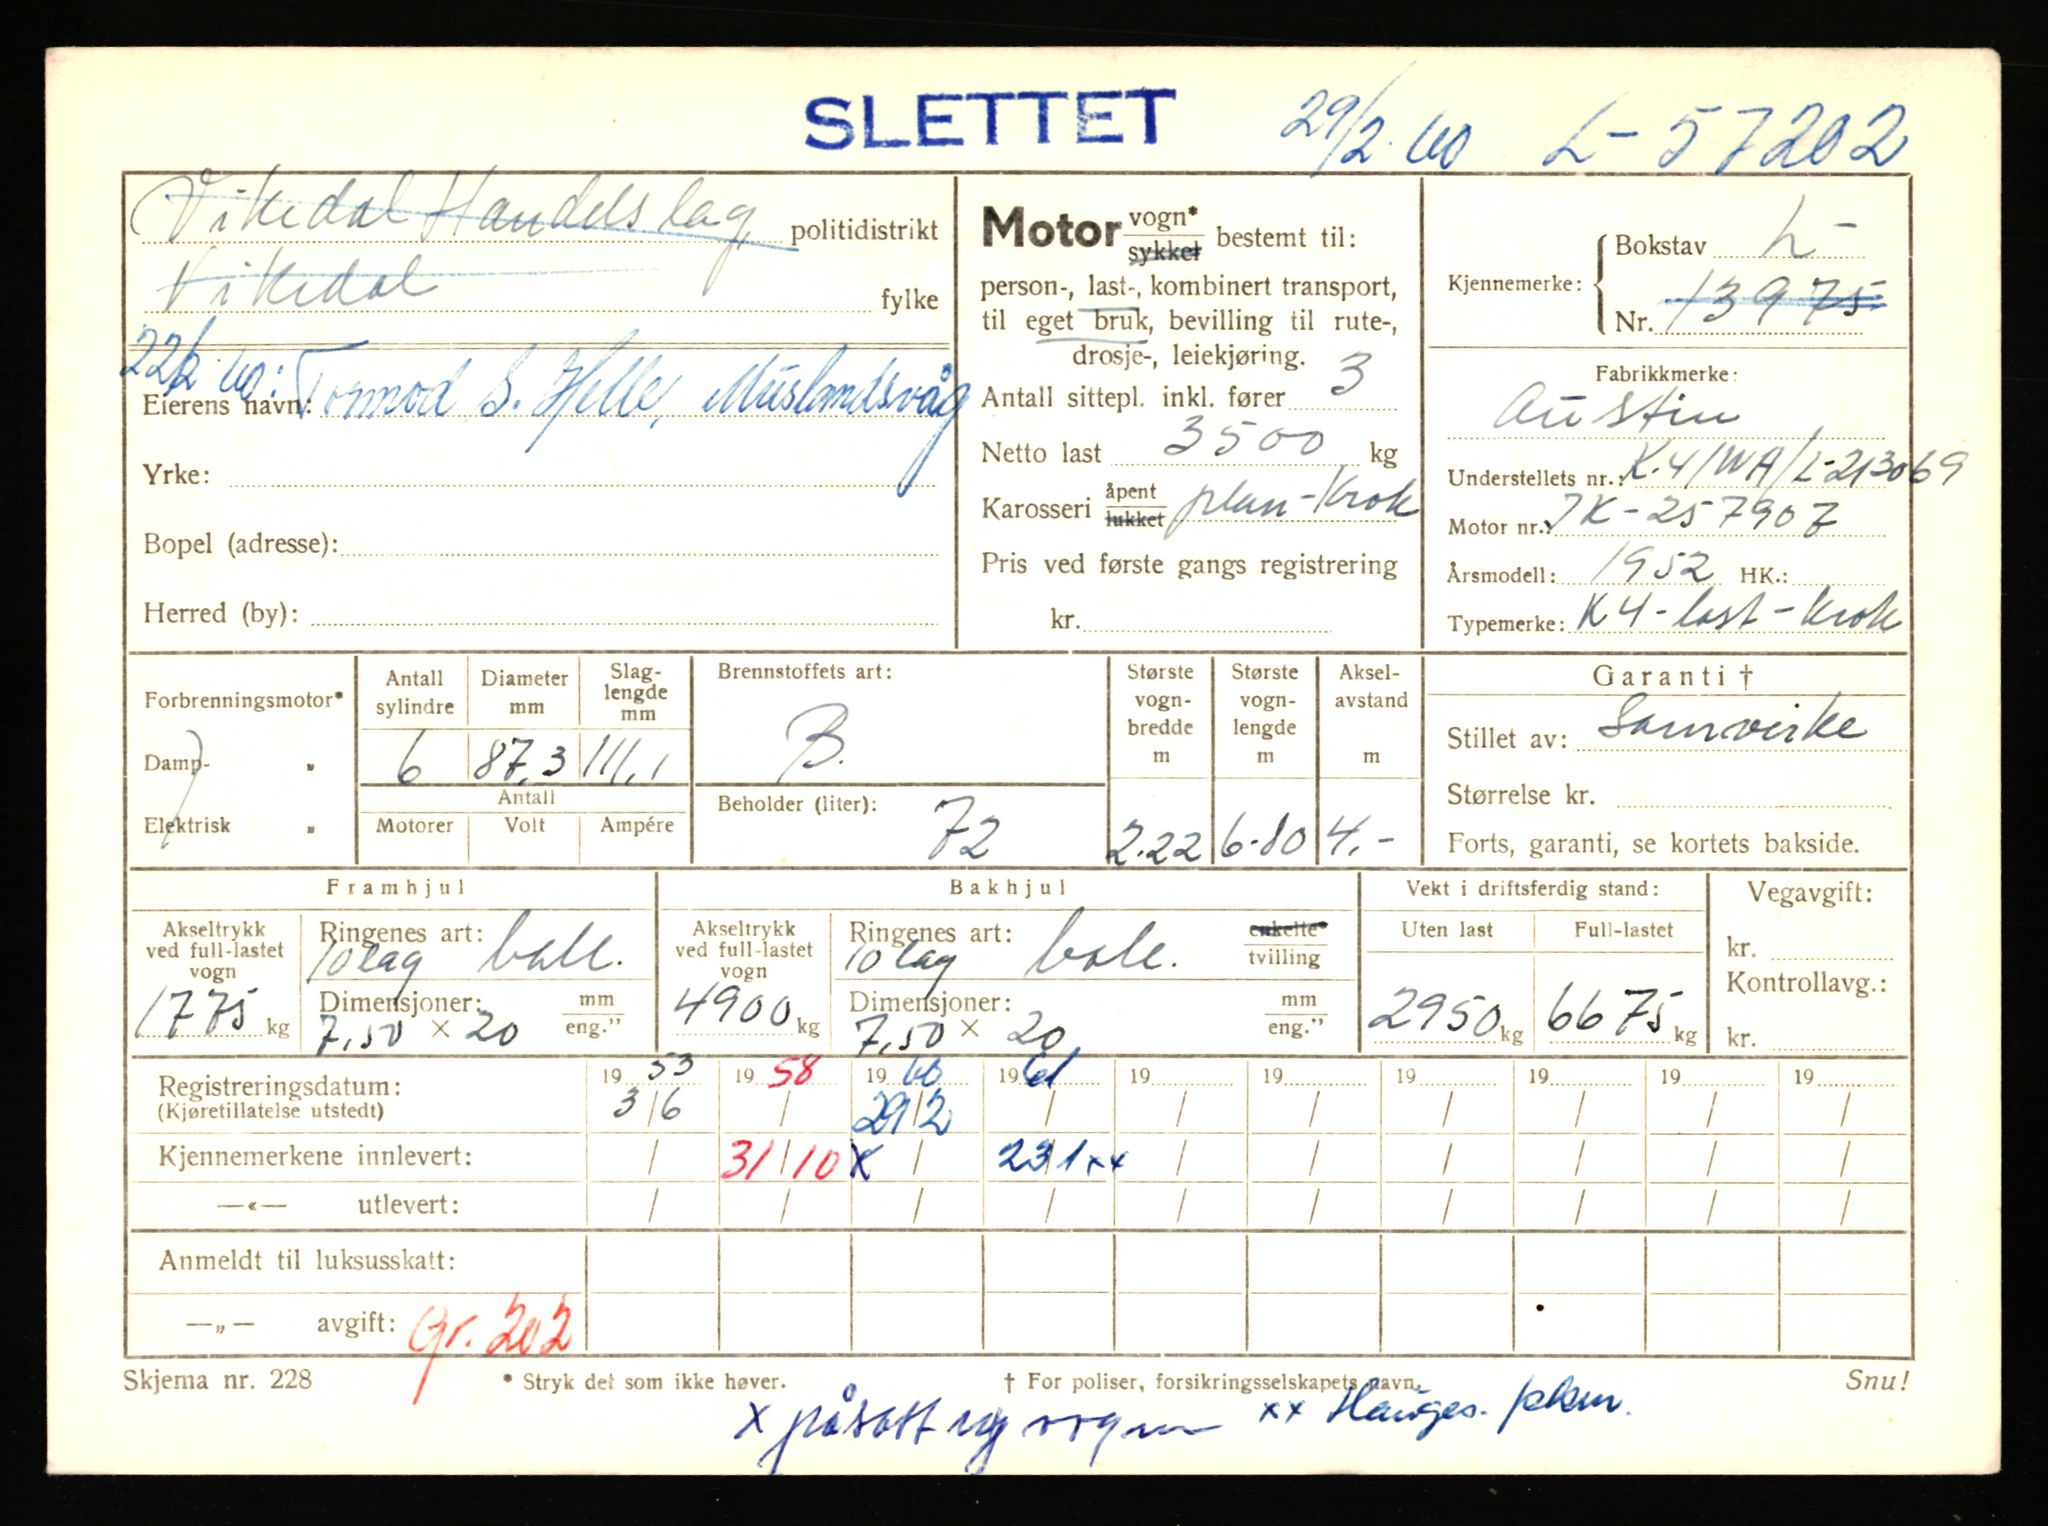 SLETTET 29/2.60 L-57202
Vikedal Handelslag politidistrikt
Vikedal fylke
22/2.60: Tormod S. Helle, Muslandsvåg
Eierens navn:
Yrke:
Bopel (adresse):
Herred (by):
Motor vogn* / sykkel bestemt til:
person-, last-, kombinert transport,
til eget bruk, bevilling til rute-,
drosje-, leiekjøring.
Antall sittepl. inkl. fører 3
Netto last 3500 kg
Karosseri åpent / lukket plan-krok
Pris ved første gangs registrering
kr.
Kjennemerke: Bokstav L-
Nr. 13975
Fabrikkmerke:
Austin
Understellets nr.: K.4/WA/L-213069
Motor nr.: 1K-257907
Årsmodell: 1952 HK.:
Typemerke: K4-last-krok
Forbrenningsmotor*
Damp- "
Elektrisk "
Antall sylindre 6
Diameter mm 87,3
Slaglengde mm 111,1
Antall
Motorer Volt Ampére
Brennstoffets art:
B.
Beholder (liter): 72
Største vognbredde m 2.22
Største vognlengde m 6.80
Akselavstand m 4.-
Garanti †
Stillet av: Samvirke
Størrelse kr.
Forts, garanti, se kortets bakside.
Framhjul
Akseltrykk ved full-lastet vogn 1775 kg
Ringenes art: 10 lag ball.
Dimensjoner: 7,50 × 20 mm / eng."
Bakhjul
Akseltrykk ved full-lastet vogn 4900 kg
Ringenes art: 10 lag ball. enkelte* / tvilling
Dimensjoner: 7,50 × 20 mm / eng."
Vekt i driftsferdig stand:
Uten last 2950 kg
Full-lastet 6675 kg
Vegavgift:
kr.
Kontrollavg.:
kr.
Registreringsdatum: 19 53 19 58 19 60 19 61 19 19 19 19 19 19
(Kjøretillatelse utstedt) 3/6 / 29/2 / / / / / / /
Kjennemerkene innlevert: / 31/10 x / 23/1 xx / / / / / /
—«— utlevert: / / / / / / / / / /
Anmeldt til luksusskatt:
—„— avgift: Gr. 202
Skjema nr. 228 * Stryk det som ikke høver. † For poliser, forsikringsselskapets navn. Snu!
x påsatt ny vogn xx Hauges. pkm.